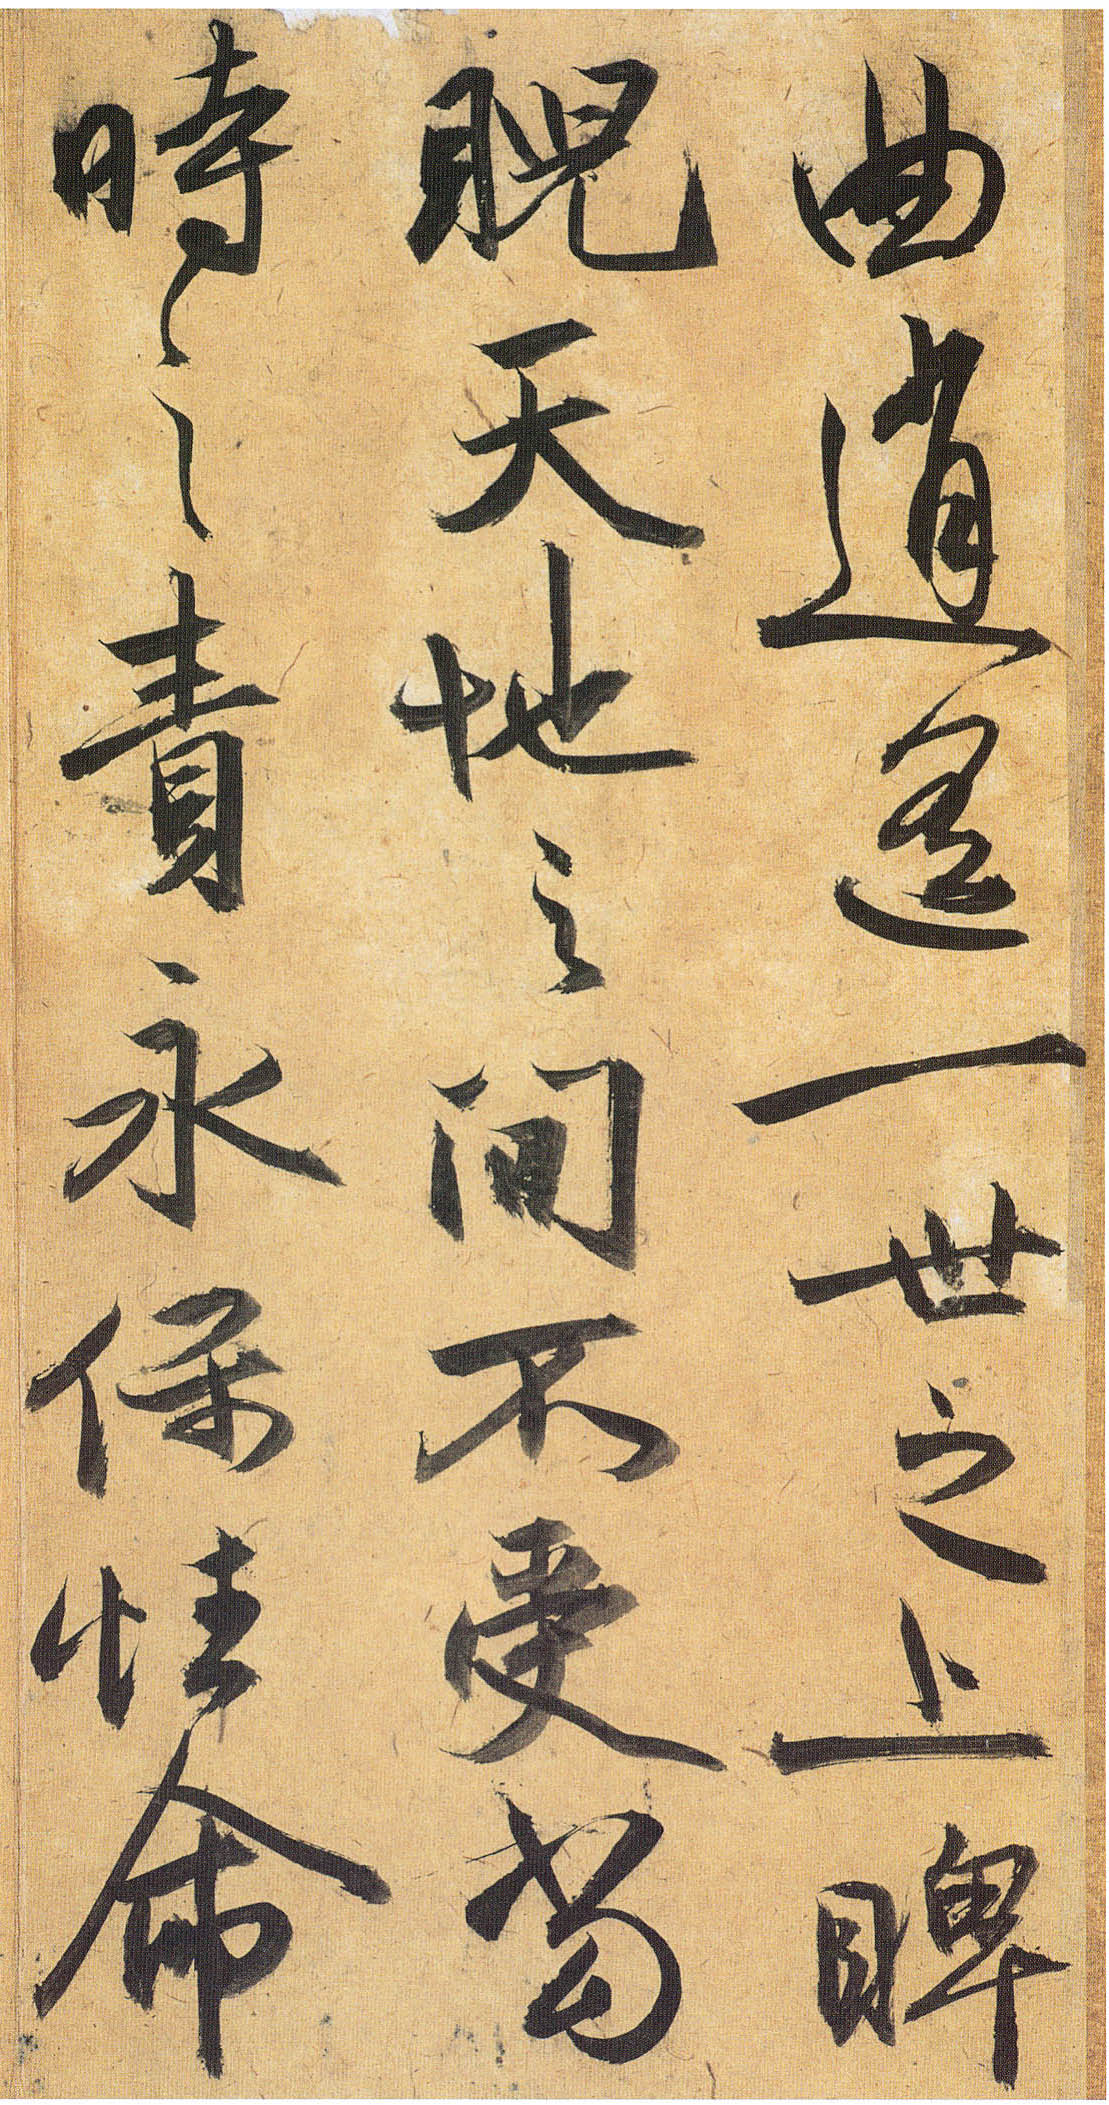 曲逍遥一世之上睥
睨天地之间不受當
時之責永保性命